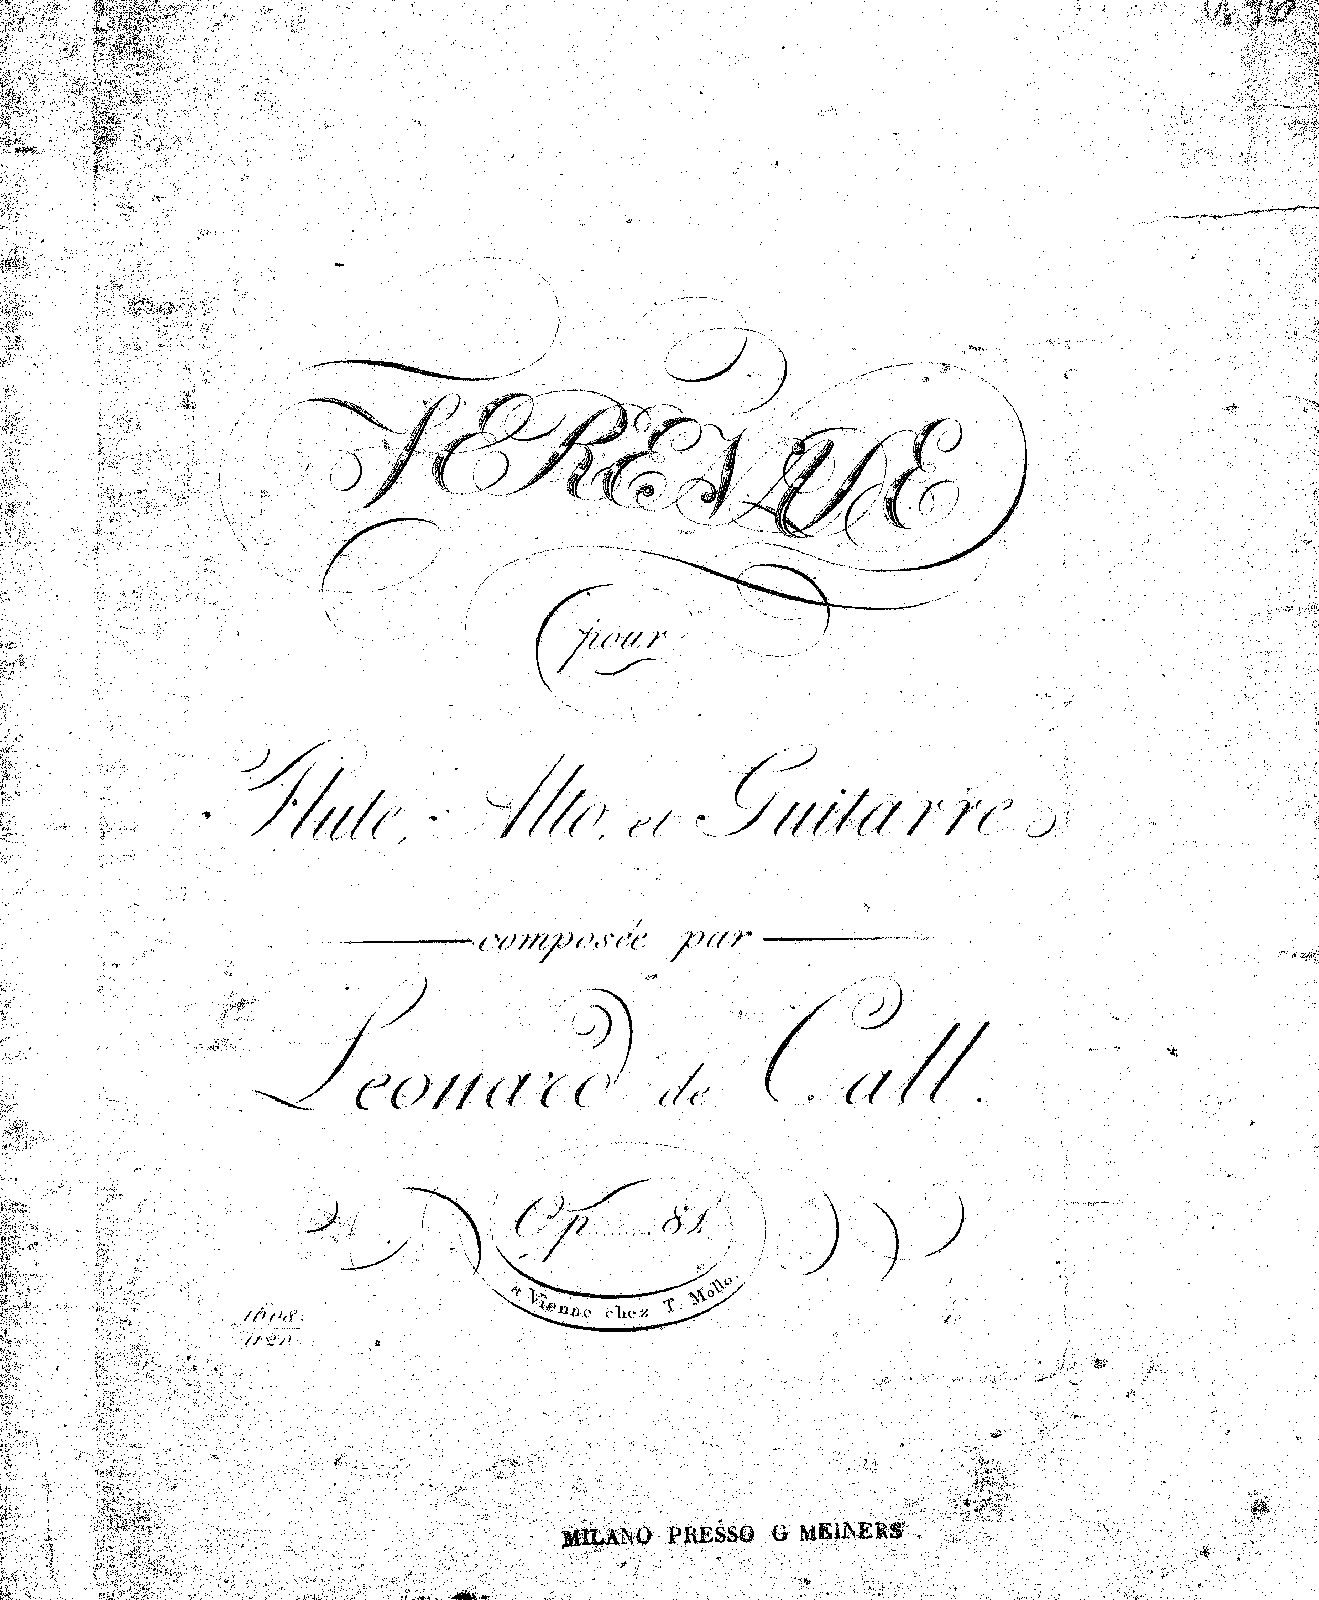 SERENADE
pour
Flute, Alto, et Guitarre
composée par
Leonard de Call.
Op 81
a Vienne chez T. Mollo.
1608.
MILANO PRESSO G MEINERS